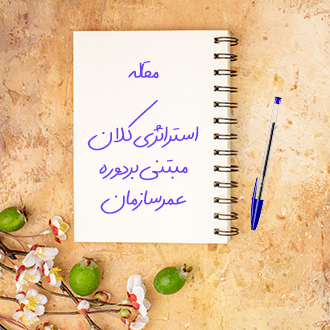 مقاله
استراتژی کلان
مبتنی بر دوره
عمر سازمان